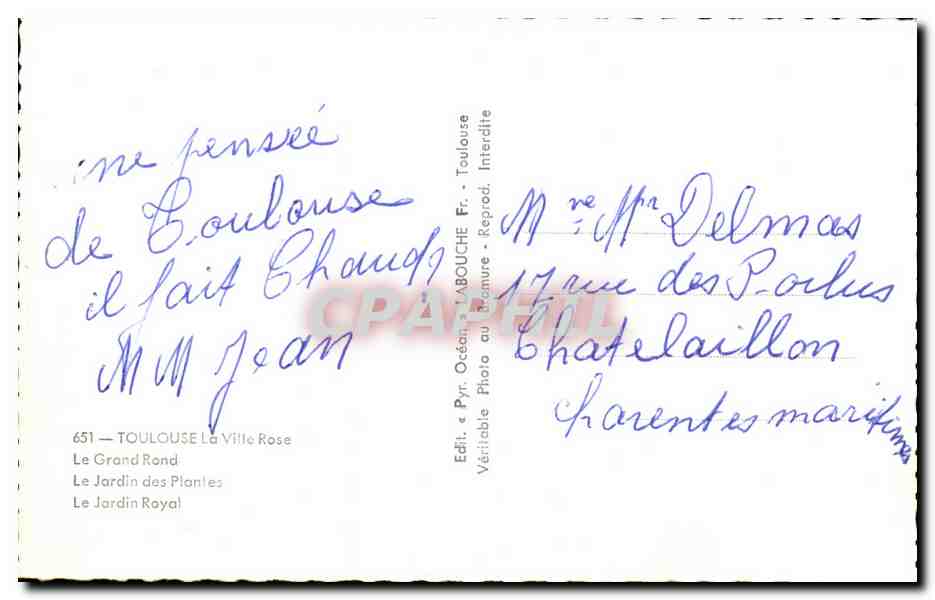 une pensée
de Toulouse
il fait Chaud
MM Jean
651 — TOULOUSE La Ville Rose
Le Grand Rond
Le Jardin des Plantes
Le Jardin Royal
Edit. « Pyr. Océan » LABOUCHE Fr. - Toulouse
Véritable Photo au Bromure - Reprod. Interdite
CPAPHIL
Mme Mr Delmas
17 rue des
Chatelaillon
charentes maritimes